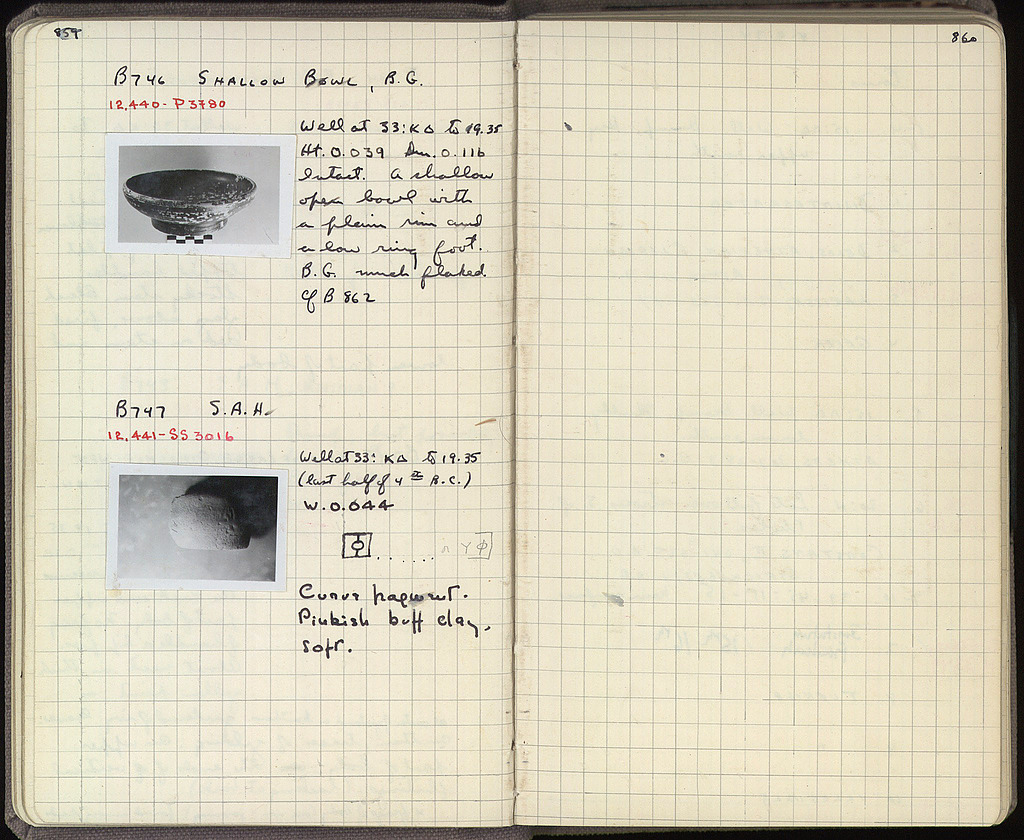 859
B746 SHALLOW BOWL, B.G.
12,440-P3780
Well at 33:ΚΔ to 19.35
Ht. 0.039 Dm. 0.116
Intact. A shallow
open bowl with
a plain rim and
a low ring foot.
B.G. much flaked.
Cf B 862
B747 S.A.H.
12,441-SS 3016
Well at 33: ΚΔ to 19.35
(last half of 4th B.C.)
W. 0.044
Φ . . . . . . Υ Φ
Curve fragment.
Pinkish buff clay,
soft.
860